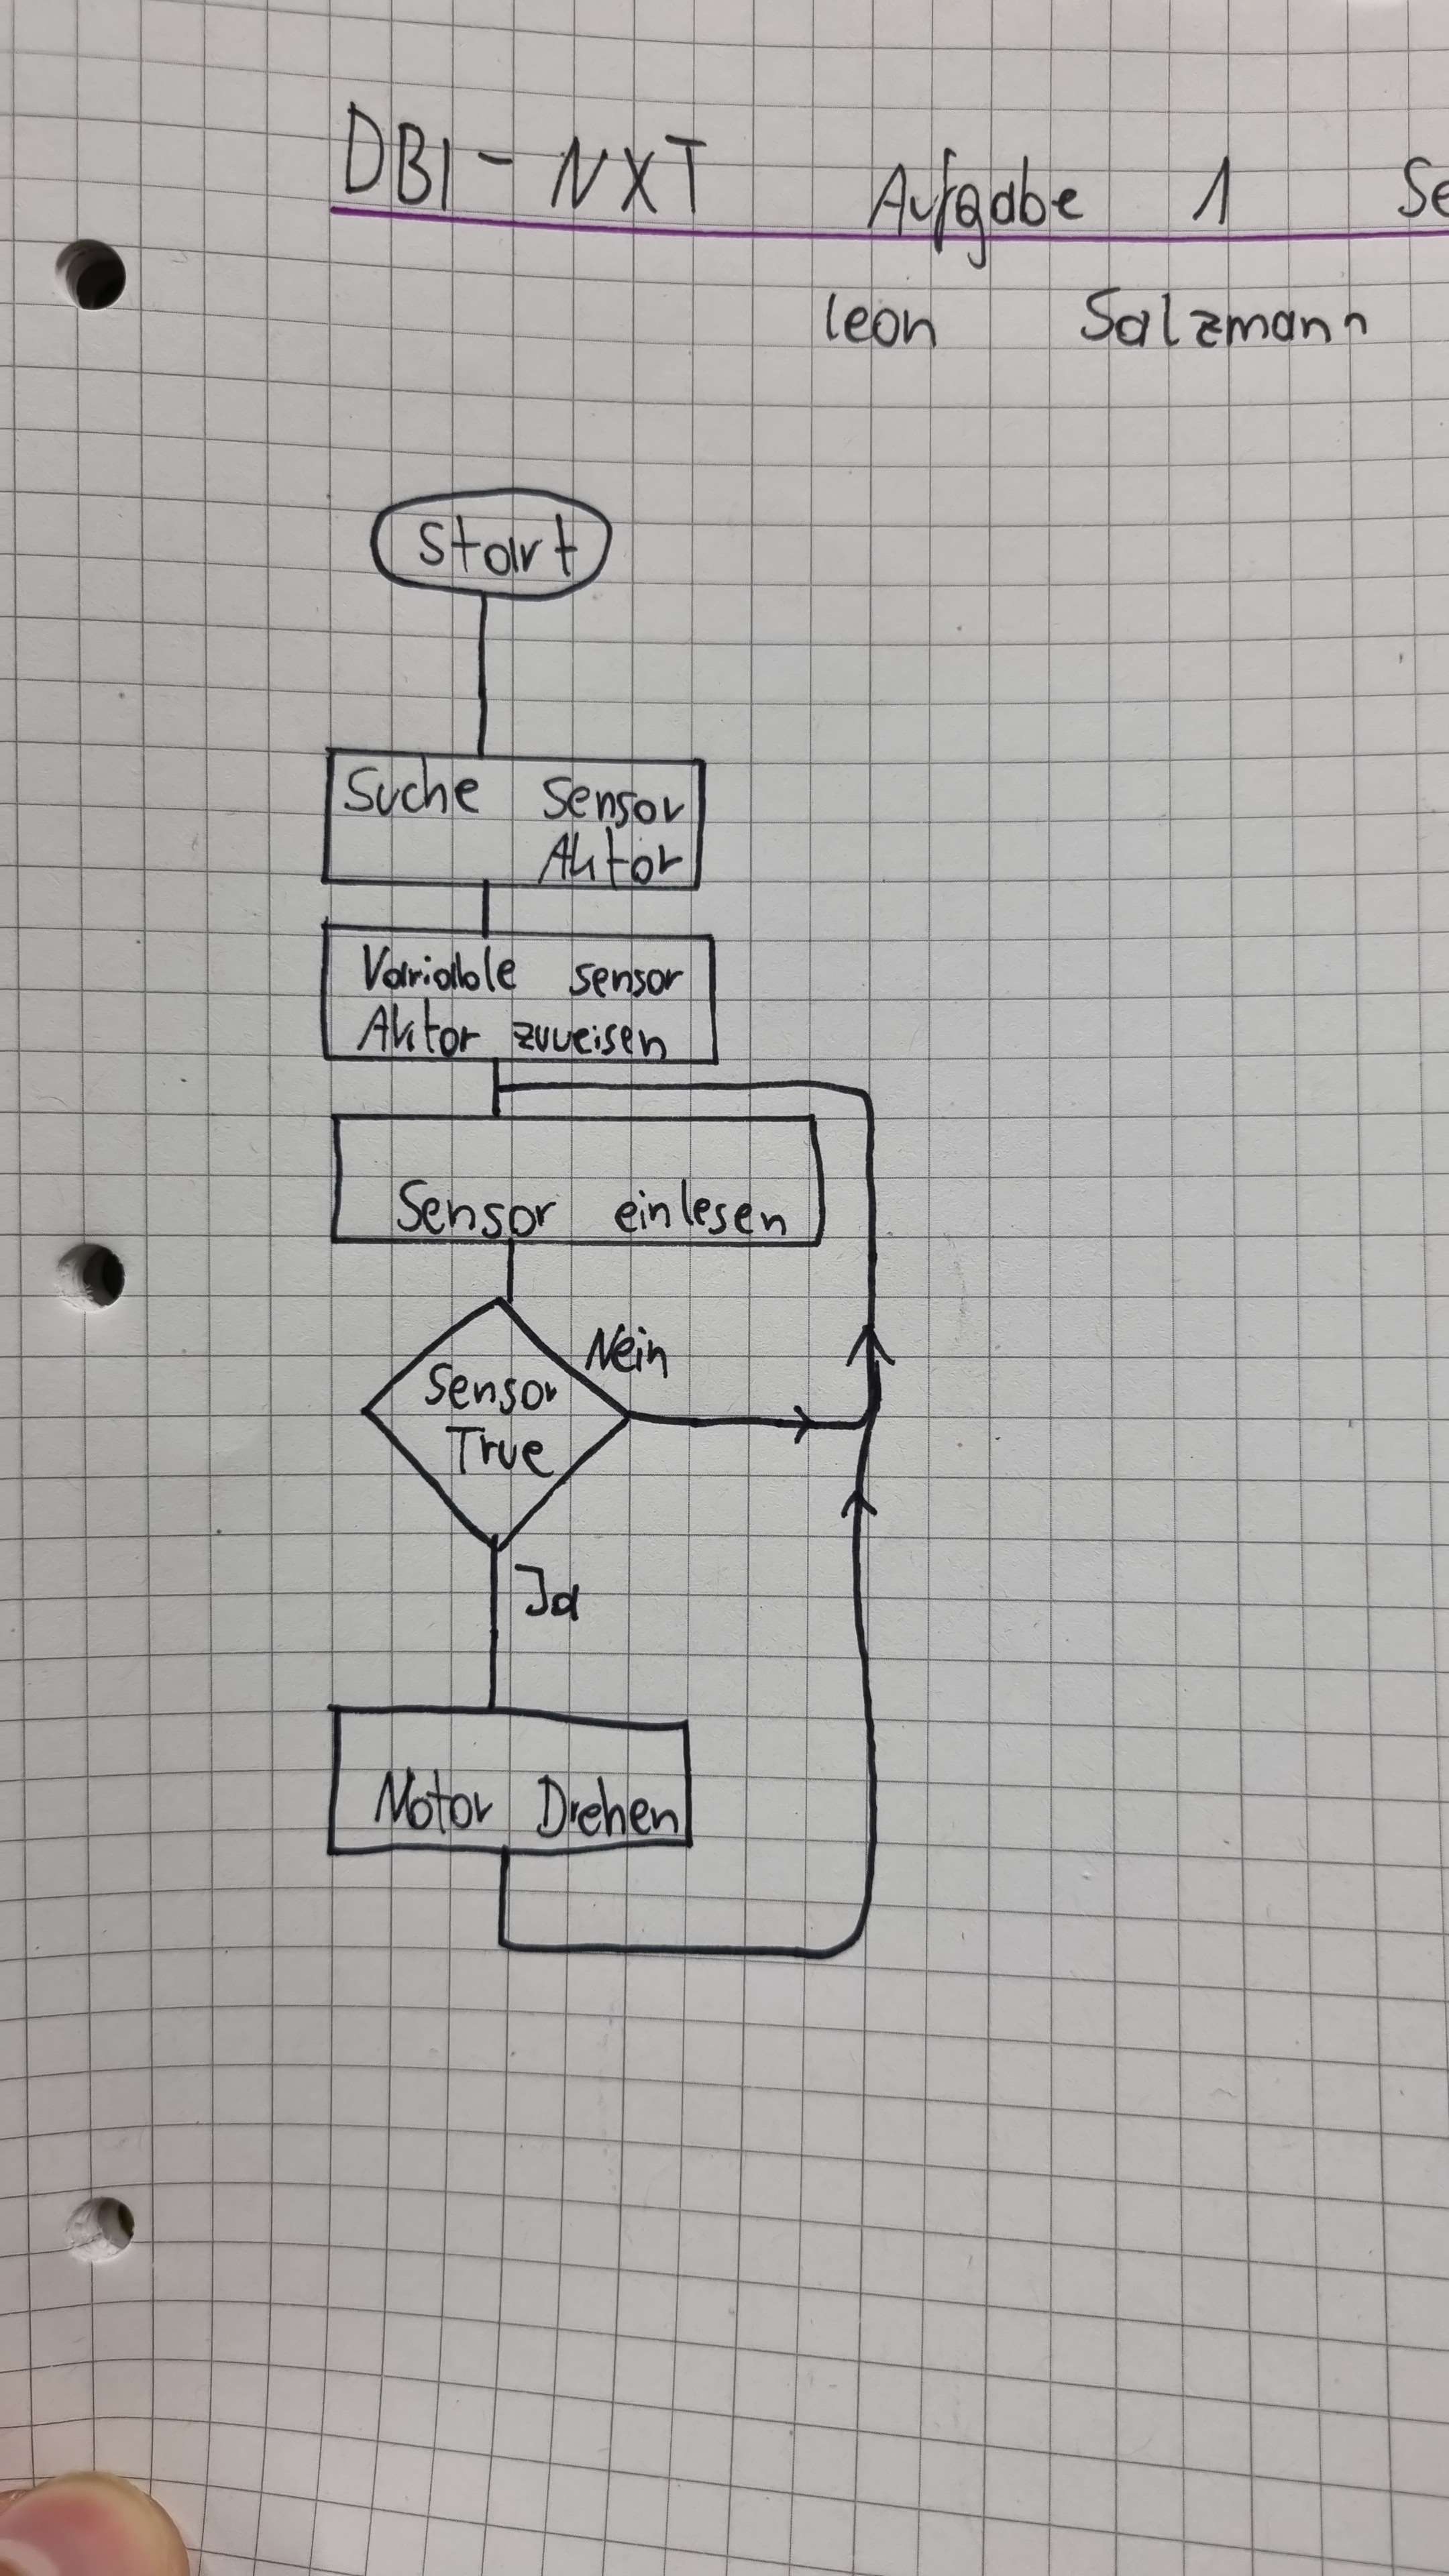 DBI - NXT Aufgabe 1 Se
leon Salzmann
Start
Suche Sensor
Aktor
Variable sensor
Aktor zuweisen
Sensor einlesen
Nein
Sensor
True
Ja
Motor Drehen